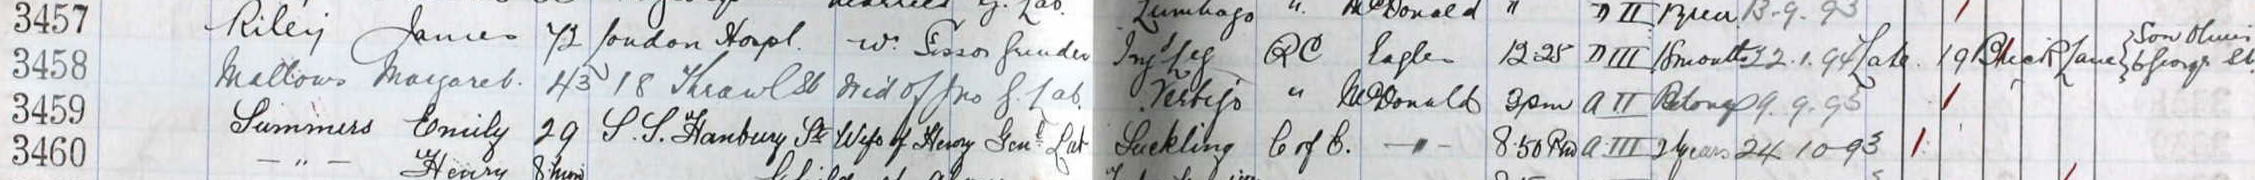 3457 Riley James 72 London Hospl. Wr. Sissor Grinder Lumbago " McDonald " D II 13.9.93
3458 Mallows Margaret. 43 18 Thrawl St Wid of Jno G. Lab. Inj Leg RC Eagles 12.25 D III 18 months 22.1.94 Late 19 Brick Lane Son Oliver 6 George St.
3459 Summers Emily 29 S.S. Hanbury St Wife of Henry Genl Lab Vertigo " McDonald 3pm A II 9.9.93
3460 — " — Henry 8 mon Suckling C of E. — " — 8.50 Pm A III 2 years 24.10.93